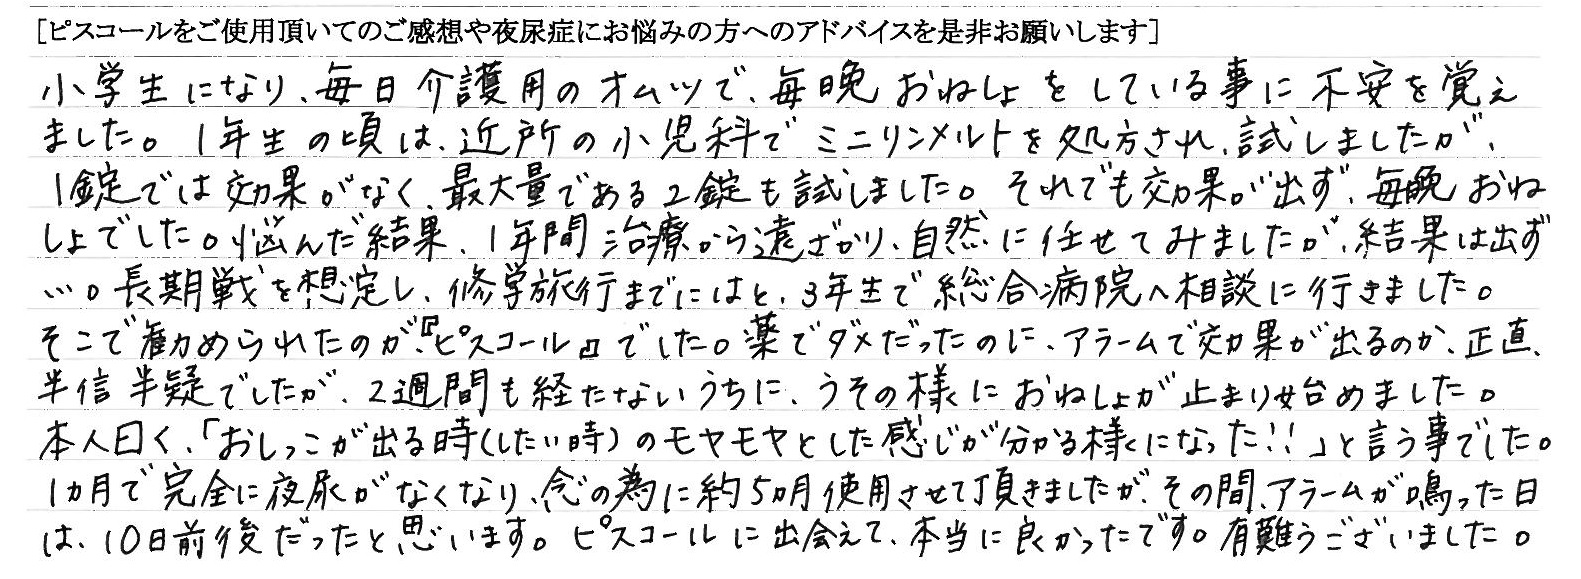 [ピスコールをご使用頂いてのご感想や夜尿症にお悩みの方へのアドバイスを是非お願いします]
小学生になり、毎日介護用のオムツで、毎晩おねしょをしている事に不安を覚え
ました。1年生の頃は、近所の小児科でミニリンメルトを処方され、試しましたが、
1錠では効果がなく、最大量である2錠も試しました。それでも効果が出ず、毎晩おね
しょでした。悩んだ結果、1年間治療から遠ざかり、自然に任せてみましたが、結果は出ず
…。長期戦を想定し、修学旅行までにはと、3年生で総合病院へ相談に行きました。
そこで勧められたのが、『ピスコール』でした。薬でダメだったのに、アラームで効果が出るのか、正直、
半信半疑でしたが、2週間も経たないうちに、うその様におねしょが止まり始めました。
本人曰く、「おしっこが出る時(したい時)のモヤモヤとした感じが分かる様になった!!」と言う事でした。
1カ月で完全に夜尿がなくなり、念の為に約5カ月使用させて頂きましたが、その間、アラームが鳴った日
は、10日前後だったと思います。ピスコールに出会えて、本当に良かったです。有難うございました。